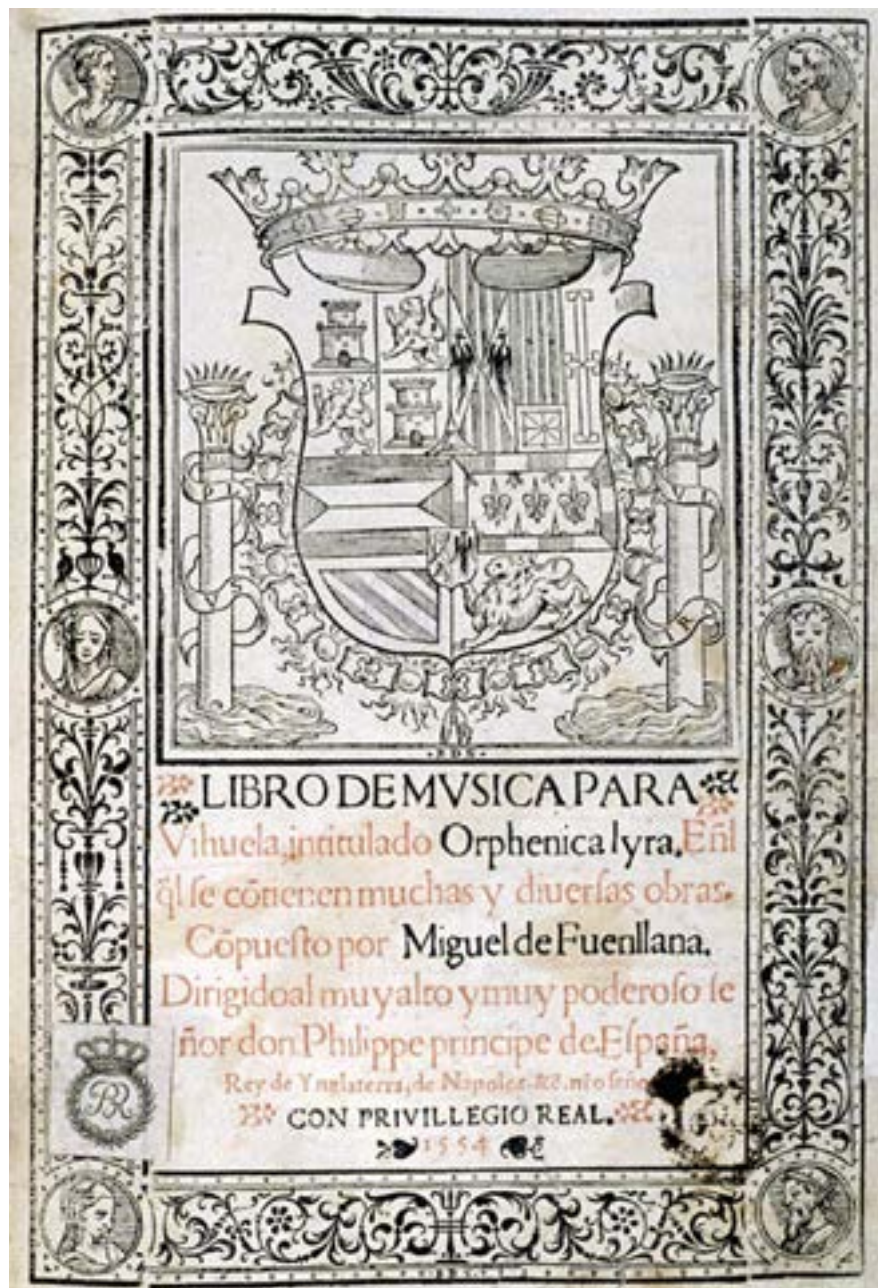 LIBRO DE MVSICA PARA
Vihuela, intitulado Orphenica lyra. Eñl
q̃l se cõtienen muchas y diuersas obras.
Cõpuesto por Miguel de Fuenllana.
Dirigido al muy alto y muy poderoso se
ñor don Philippe principe de España,
Rey de Ynglaterra, de Napoles &c. nr̃o señor
CON PRIVILLEGIO REAL.
1554